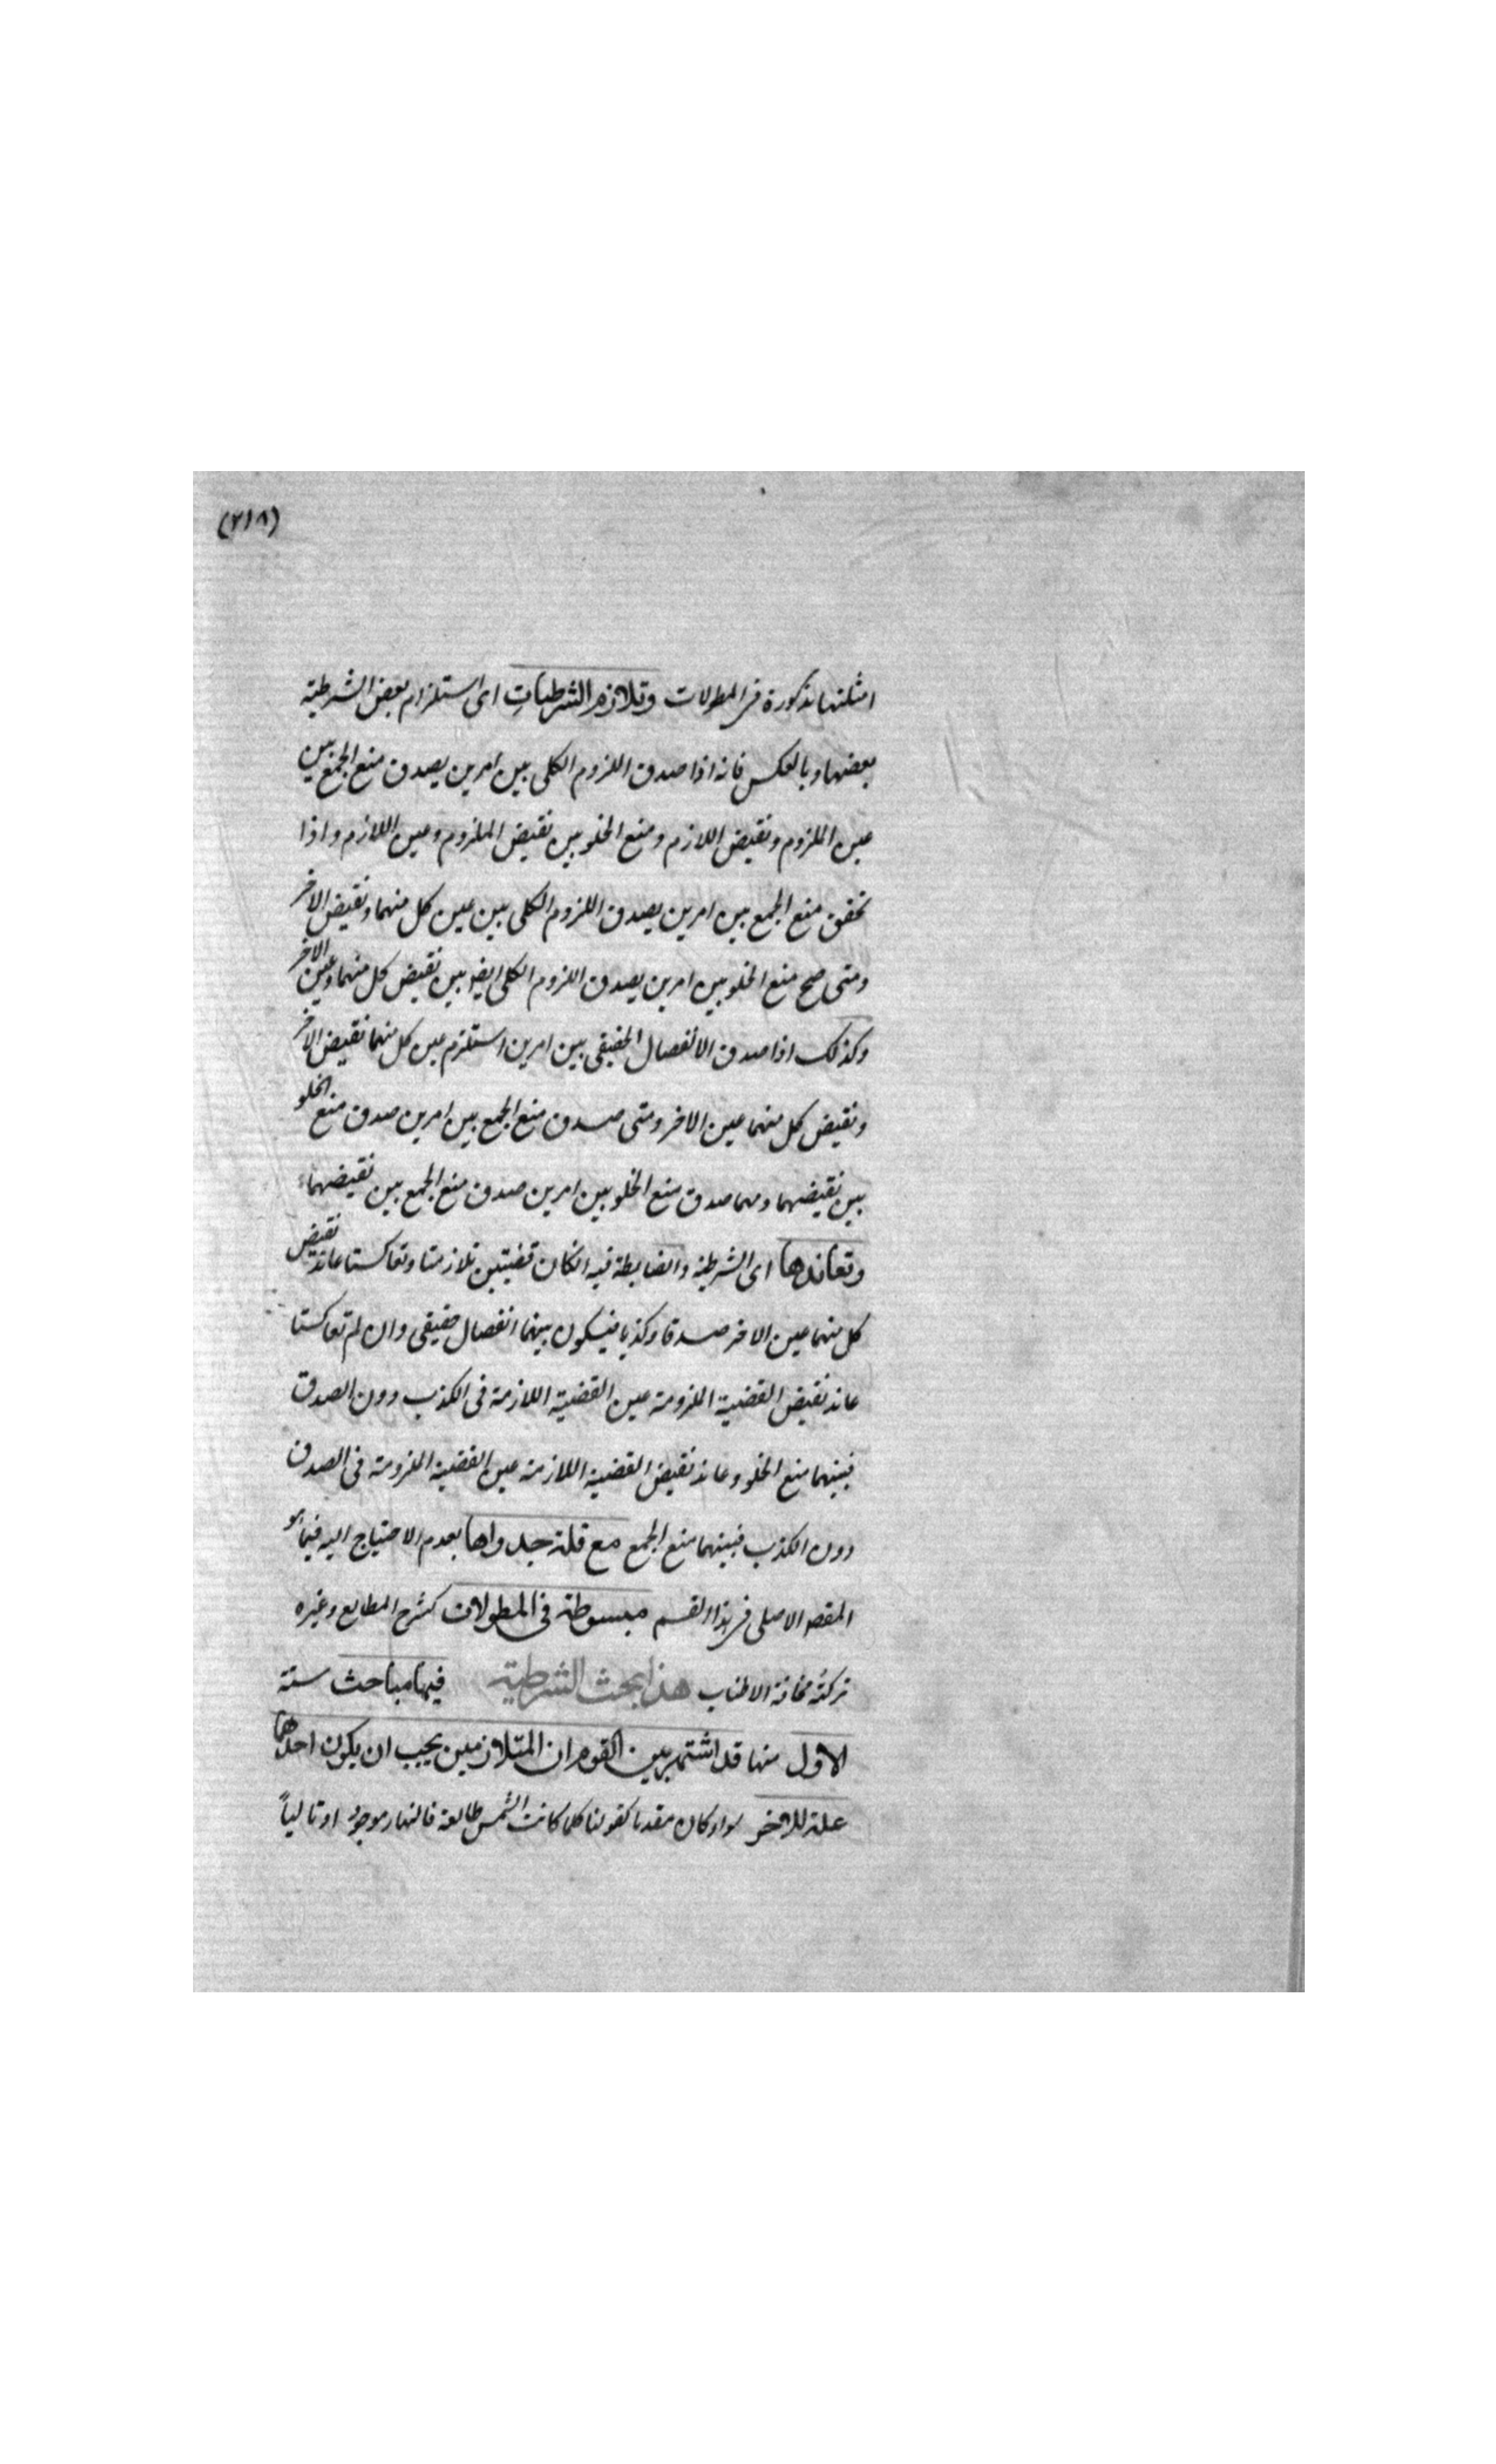 (٢١٨)
امثلتها مذكورة فى المطولات وتلازم الشرطيات اى استلزام بعض الشرطية
بعضها وبالعكس فانه اذا صدق اللزوم الكلى بين امرين يصدق منع الجمع بين
عين الملزوم ونقيض اللازم ومنع الخلو بين نقيض الملزوم وعين اللازم واذا
تحقق منع الجمع بين امرين يصدق اللزوم الكلى بين عين كل منهما ونقيض الاخر
ومتى صح منع الخلو بين امرين يصدق اللزوم الكلى ايضا بين نقيض كل منهما وعين الاخر
وكذلك اذا صدق الانفصال الحقيقى بين امرين استلزم عين كل منهما نقيض الاخر
ونقيض كل منهما عين الاخر ومتى صدق منع الجمع بين امرين صدق منع الخلو
بين نقيضهما ومهما صدق منع الخلو بين امرين صدق منع الجمع بين نقيضهما
وتعاندها اى الشرطية والضابطة فيه انكان قضيتين تلازمتا وتعاكستا عاند نقيض
كل منهما عين الاخر صدقا وكذبا فيكون بينهما انفصال حقيقى وان لم تعاكستا
عاند نقيض القضية الملزومة عين القضية اللازمة فى الكذب دون الصدق
فبينهما منع الخلو وعاند نقيض القضية اللازمة عين القضية الملزومة فى الصدق
دون الكذب فبينهما منع الجمع مع قلة جدواها بعدم الاحتياج اليه فيما هو
المقصد الاصلى فى هذا القسم مبسوطة فى المطولات كشرح المطالع وغيره
تركته مخافة الاطناب هذا بحث الشرطية فيها مباحث ستة
الاول منها قد اشتهر بين القوم ان المتلازمين يجب ان يكون احدهما
علة للاخر سواء كان مقدما كقولنا كلما كانت الشمس طالعة فالنهار موجود او تالياً